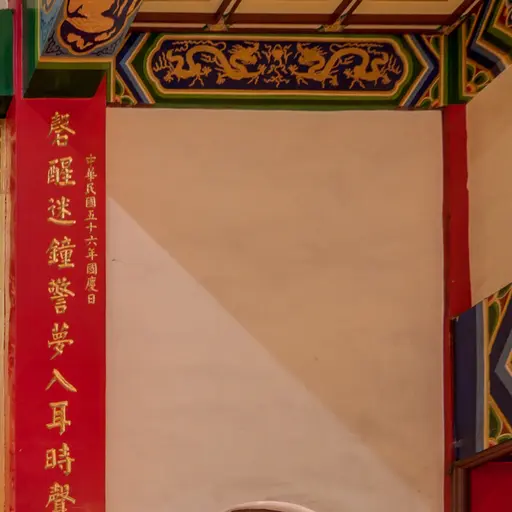 中華民國五十六年國慶日
磬醒迷鐘警夢入耳時聲